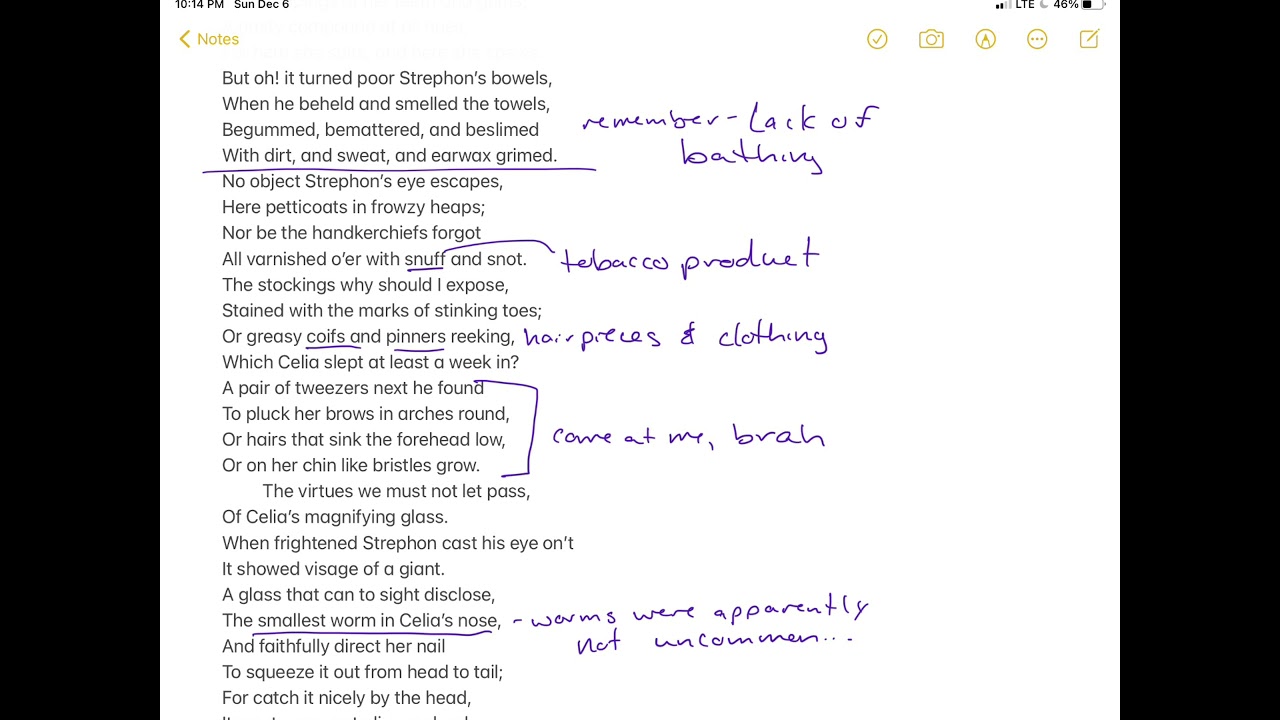 10:14 PM Sun Dec 6
LTE 46%
Notes
But oh! it turned poor Strephon's bowels,
When he beheld and smelled the towels,
Begummed, bemattered, and beslimed
With dirt, and sweat, and earwax grimed.
remember - Lack of
bathing
No object Strephon's eye escapes,
Here petticoats in frowzy heaps;
Nor be the handkerchiefs forgot
All varnished o'er with snuff and snot.
tobacco product
The stockings why should I expose,
Stained with the marks of stinking toes;
Or greasy coifs and pinners reeking,
hairpieces & clothing
Which Celia slept at least a week in?
A pair of tweezers next he found
To pluck her brows in arches round,
Or hairs that sink the forehead low,
Or on her chin like bristles grow.
come at me, brah
The virtues we must not let pass,
Of Celia's magnifying glass.
When frightened Strephon cast his eye on't
It showed visage of a giant.
A glass that can to sight disclose,
The smallest worm in Celia's nose,
- worms were apparently
not uncommon...
And faithfully direct her nail
To squeeze it out from head to tail;
For catch it nicely by the head,